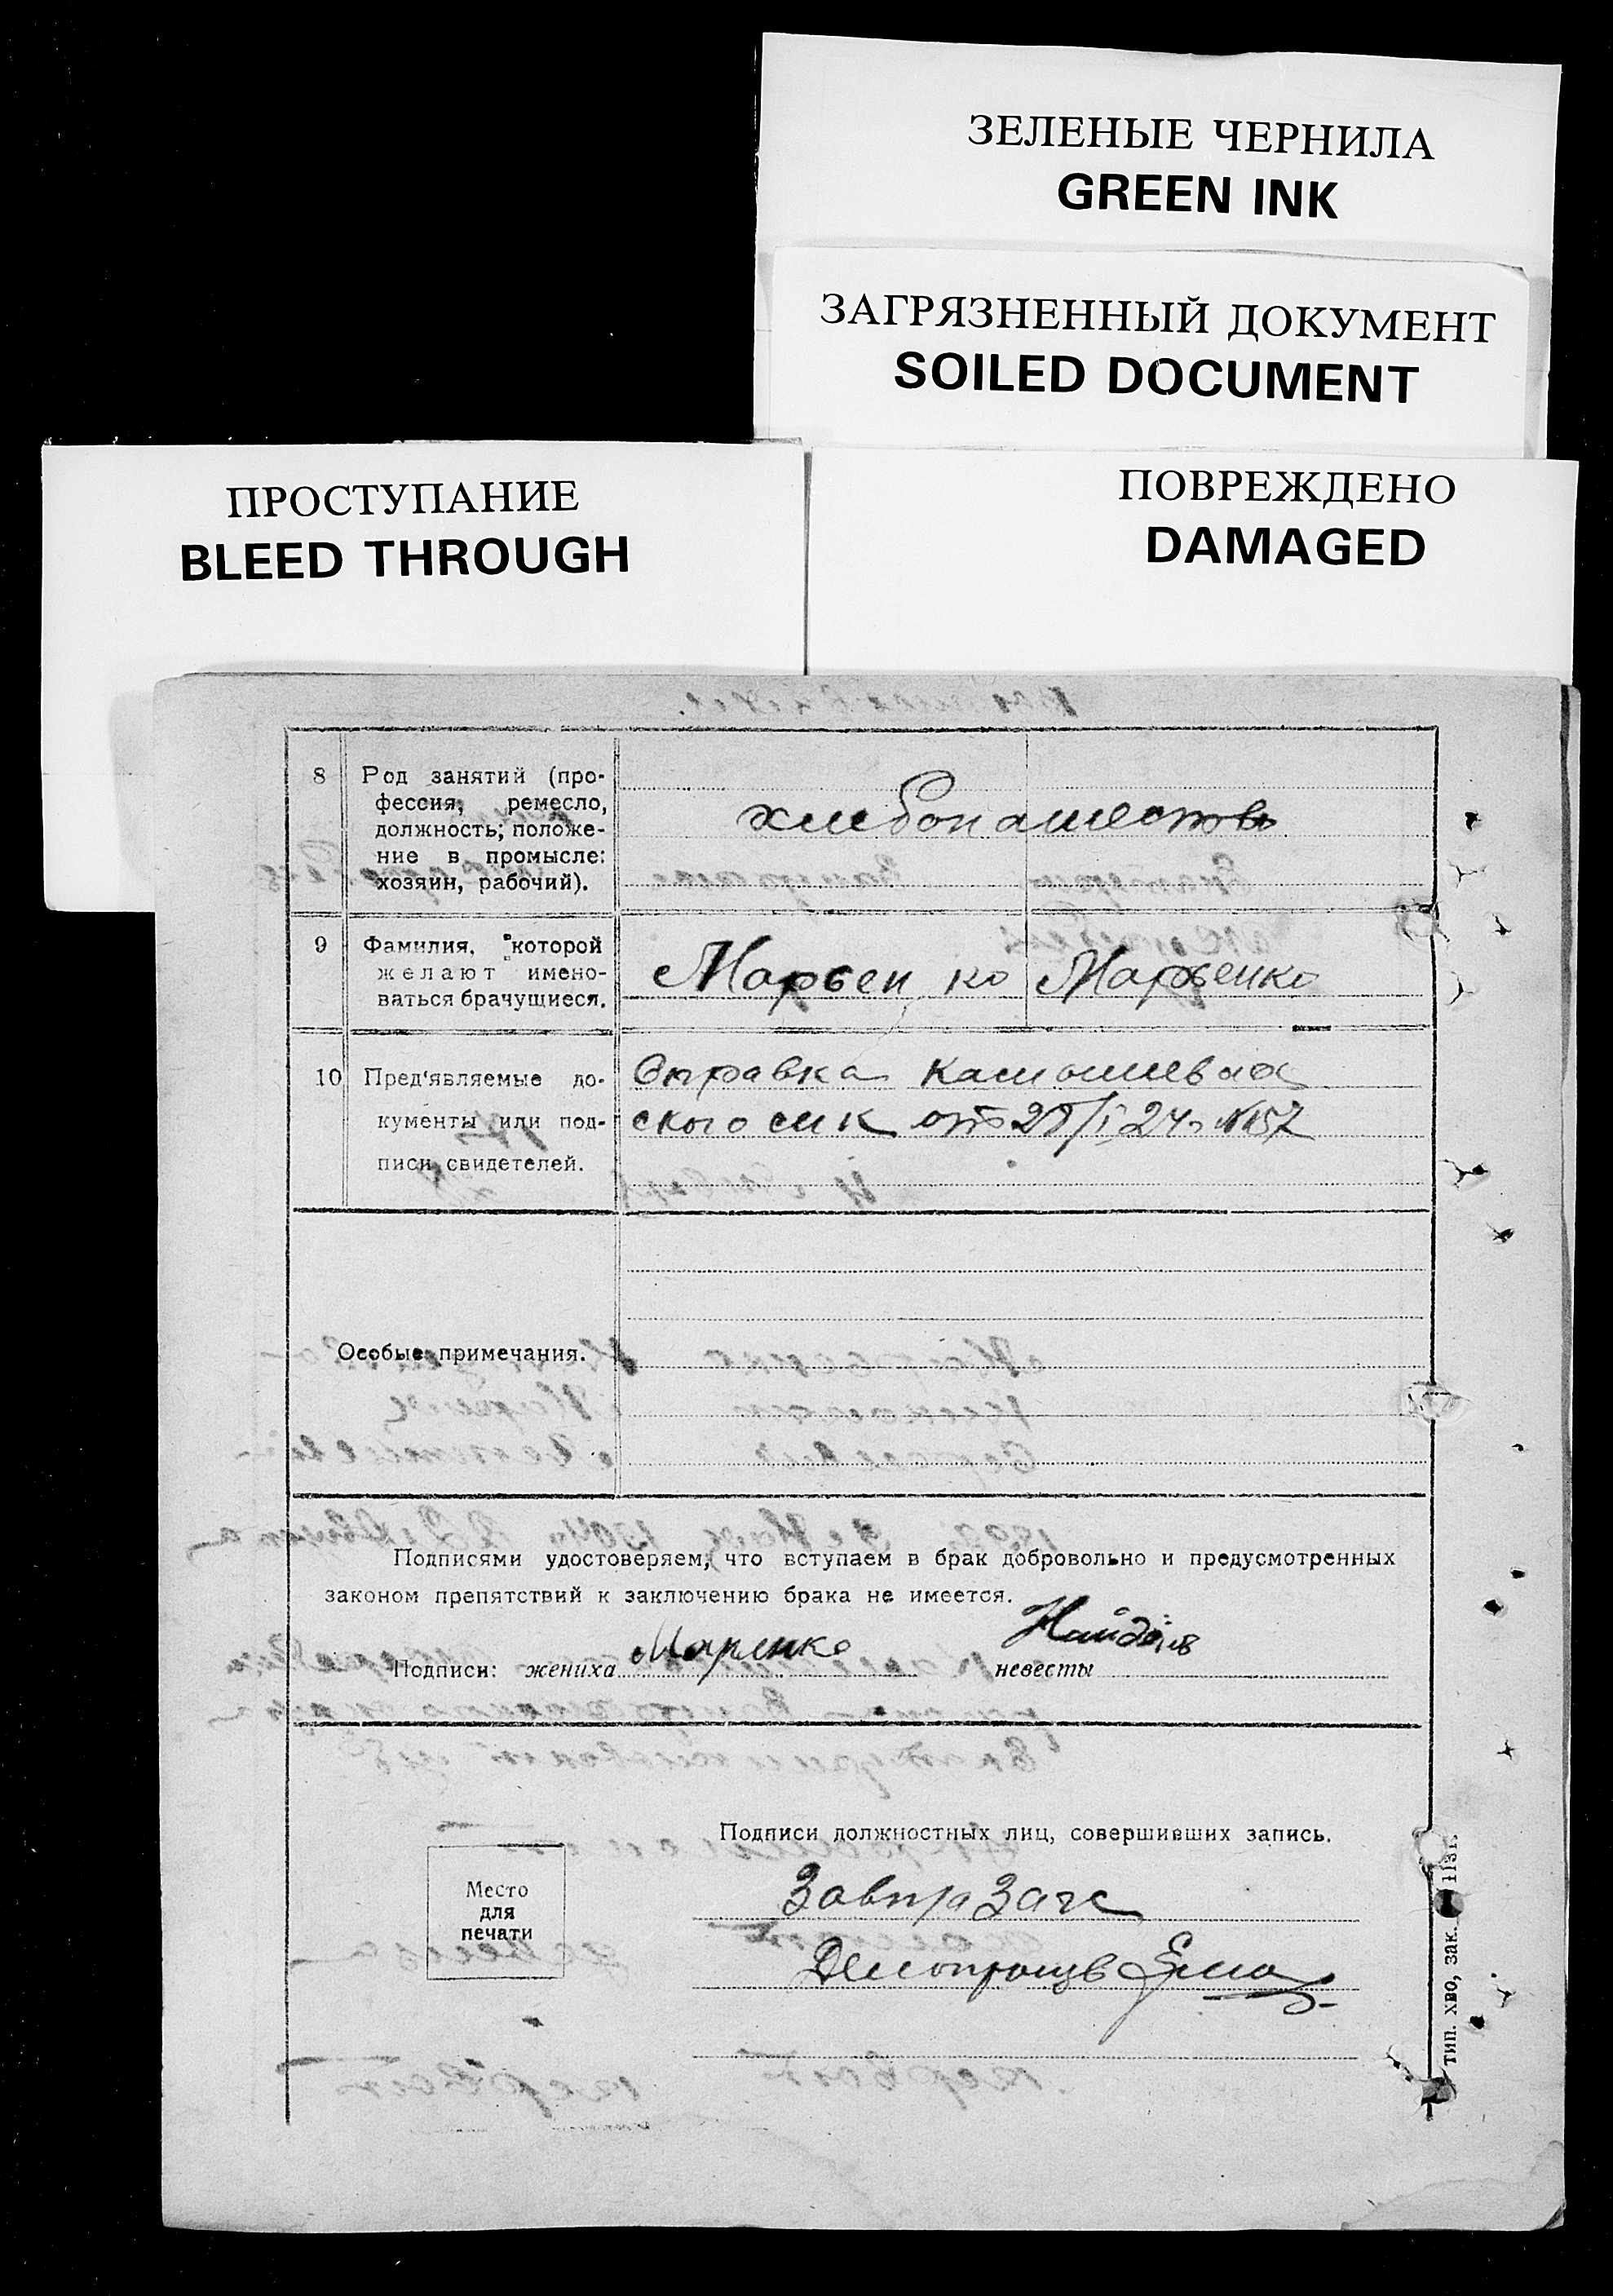 ЗЕЛЕНЫЕ ЧЕРНИЛА
GREEN INK
ЗАГРЯЗНЕННЫЙ ДОКУМЕНТ
SOILED DOCUMENT
ПРОСТУПАНИЕ
BLEED THROUGH
ПОВРЕЖДЕНО
DAMAGED
8 Род занятий (про-
фессия; ремесло,
должность; положе-
ние в промысле:
хозяин, рабочий).
хлебопашество
9 Фамилия, которой
желают имено-
ваться брачущиеся.
Марвенко Марвенко
10 Пред'являемые до-
кументы или под-
писи свидетелей.
Справка
ского сик от 28/I 24г №157
Особые примечания.
Подписями удостоверяем, что вступаем в брак добровольно и предусмотренных
законом препятствий к заключению брака не имеется.
Подписи: жениха невесты
Подписи должностных лиц, совершивших запись.
Место
для
печати
Завпр Загс
Делопроизв
тип. ХВО, зак. 1131.